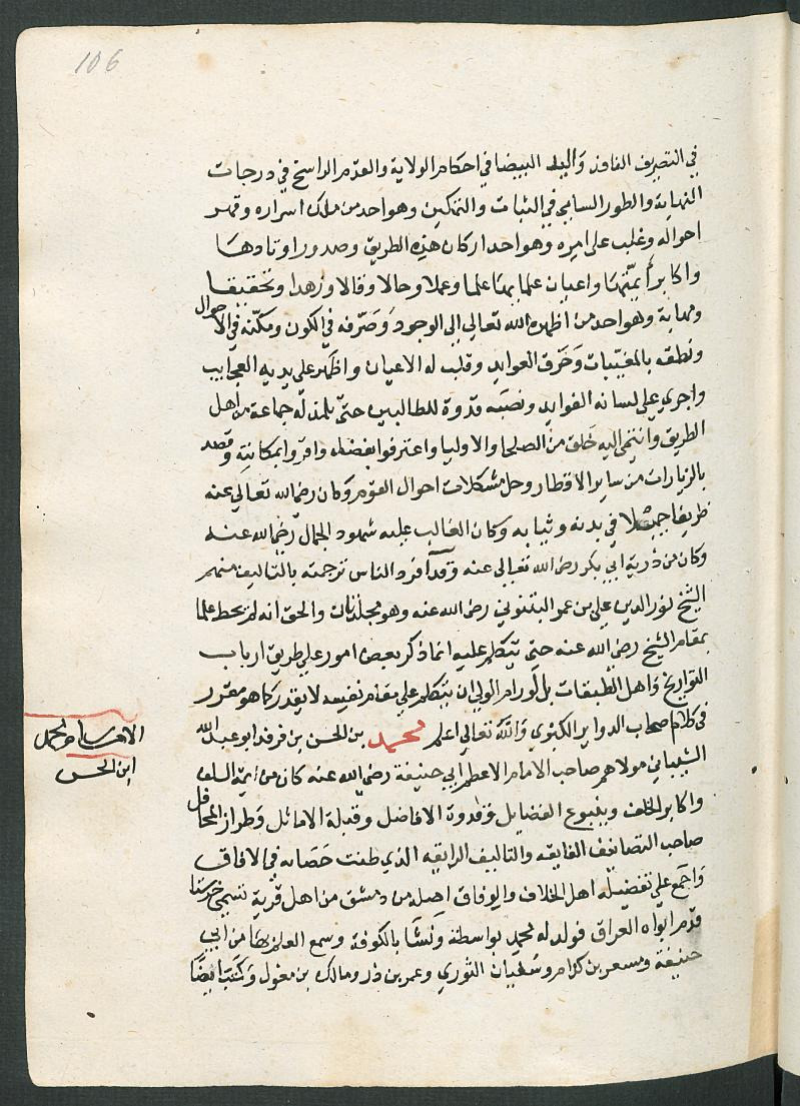 106
في التصريف النافذ واليد البيضا في احكام الولاية والقدم الراسخ في درجات
النهاية والطور السامي في الثبات والتمكين وهو احد من ملك اسراره وقهر
احواله وغلب على امره وهو احد اركان هذه الطريق وصدور اوتادها
واكابر أيمّتها واعيان علمايها علما وعملا وحالا وقالا وزهدا وتحقيقا
ومهابة وهو احد من اظهره الله تعالى إلى الوجود وَصَرّفه في الكون ومكّنه في الاحوال
ونطقه بالمغيّبات وخرق العوايد وقلب له الاعيان واظهر على يديه العجايب
واجري على لسانه الفوايد ونصبَه قدوة للطالبين حتىّ تلمذ له جماعة من اهل
الطريق وانتمى اليه خَلق من الصلحا والاوليا واعترفوا بفضله واقرّوا بمكانتِه وقصد
بالزيارات من ساير الاقطار وحل مشكلات احوال القوم وكان رضي الله تعالى عنه
ظريفا جميلا في بدنه وثيابه وكان الغالب عليه شهود الجمال رضي الله عنه
وكان من ذرية ابي بكر رضي الله تعالى عنه وقد آفرد الناس ترجمته بالتاليف منهم
الشيخ نور الدين علي بن عمر البتنوني رضي الله عنه وهو مجلدان والحق انه لم يحط علما
بمقام الشيخ رضي الله عنه حتى يتكلم عليه انما ذكر بعض امور على طريق ارباب
التواريخ وَاهل الطبقات بل لو رام الولي ان يتكلم على مقام نفسه لا يقدر كما هو مقرر
في كلام اصحاب الدواير الكبري وَاللّه تعالى اعلم محمد بن الحسن بن فرقد ابو عبد الله
الشيباني مولاهم صاحب الامام الاعظم ابي حنيفة رضي الله عنه كان من ايمة السلف
واكابر الخلف وينبوع الفضايل وقدوة الافاضل وقبلة الاماثل وَطراز المحافل
صاحب التصانيف الفايقه والتاليف الرايقه الذي طنت حَصَاته في الافاق
وَاجمع على تفضيله اهل الخلاف والوفاق اصله من دمشق من اهل قرية تسمى حرستا
قدم ابواه العراق فولد له محمد بواسطة ونشَأ بالكوفة وسمع العلم بها من ابي
حنيفة ومسعر بن كدام وسفيان الثوري وعمر بن ذر ومالك بن مغول وَكتب ايضًا
الامام محمد
ابن الحسن